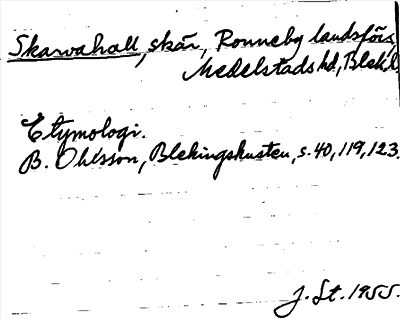 Skarvahall, skär, Ronneby landsförs.
Medelstads hd, Blek. l.
Etymologi.
B. Ohlsson, Blekingskusten, s. 40, 119, 123.
J. St. 1955.